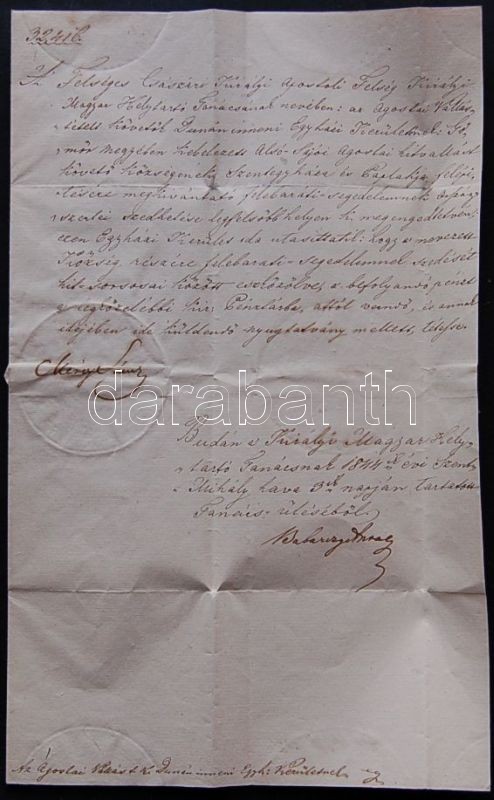 Felséges Császári Királyi Apostoli Felség Királyi
Magyar Helytartó Tanácsának nevében: az Ágostai Vallás-
tételt követő Dunáninneni Egyházi Kerületnek: Gö-
mör megyében kebelezett Alsó-Sajói Ágostai hitvallást
követő községnek, Szentegyháza és Paplakja felépí-
tésére megkivántató felebaráti-segedelemnek
szedhetése legfelsőbb helyen ki megengedtetvén:
ezen Egyházi Kerület oda utasíttatik: hogy a nevezett
Község részére felebaráti-segedelemnek szedését
hit-sorsosai között eszközölvén, a befolyandó pénzt
a legközelebbi Kir: Pénztárba, attól veendő, és annak
idejében ide küldendő nyugtatvány mellett, letesse.
darabanth
Budán a Királyi Magyar Hely-
tartó Tanácsnak 1844k évi Szent
Mihály hava 3ik napján tartatott
Tanács-üléséből.
Az Ágostai Vallást k. Dunáninneni Egyh: Kerületnek